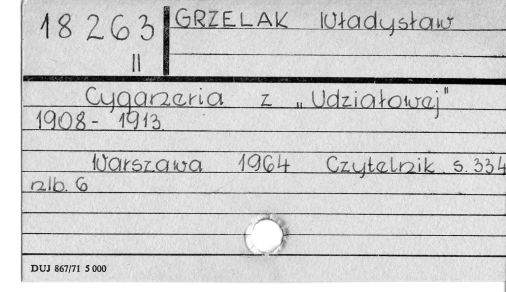 18 263 GRZELAK Władysław
II
Cyganeria z „Udziałowej"
1908- 1913
Warszawa 1964 Czytelnik s. 334
nlb. 6
DUJ 867/71 5 000